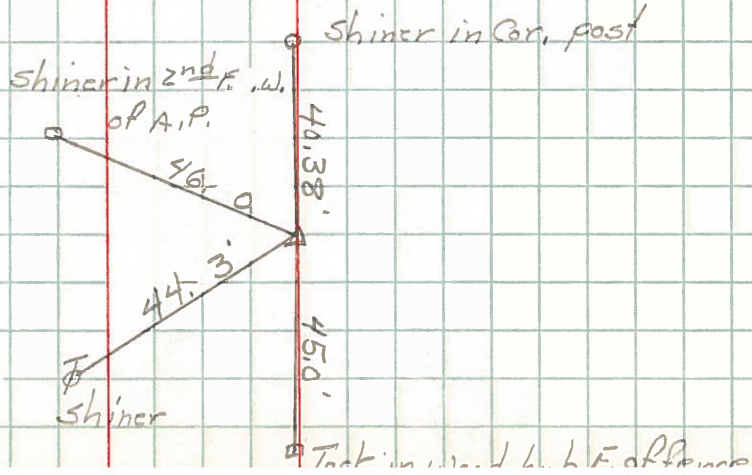 Shiner in Cor. post
Shiner in 2nd F. .W.
of A.P.
40.38'
44.3'
45.0'
Shiner
Tack in wood hub E. of fence